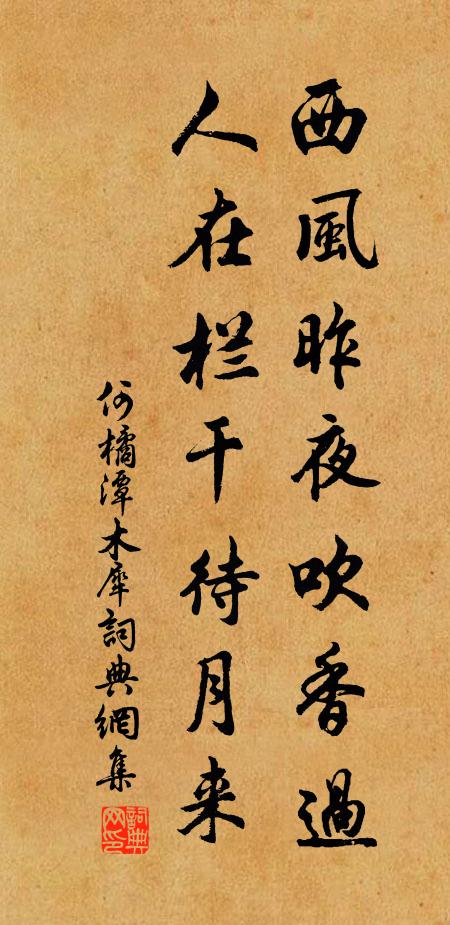 西風昨夜吹香過
人在栏干待月来
何橘潭木犀詞典網集
詞典网印